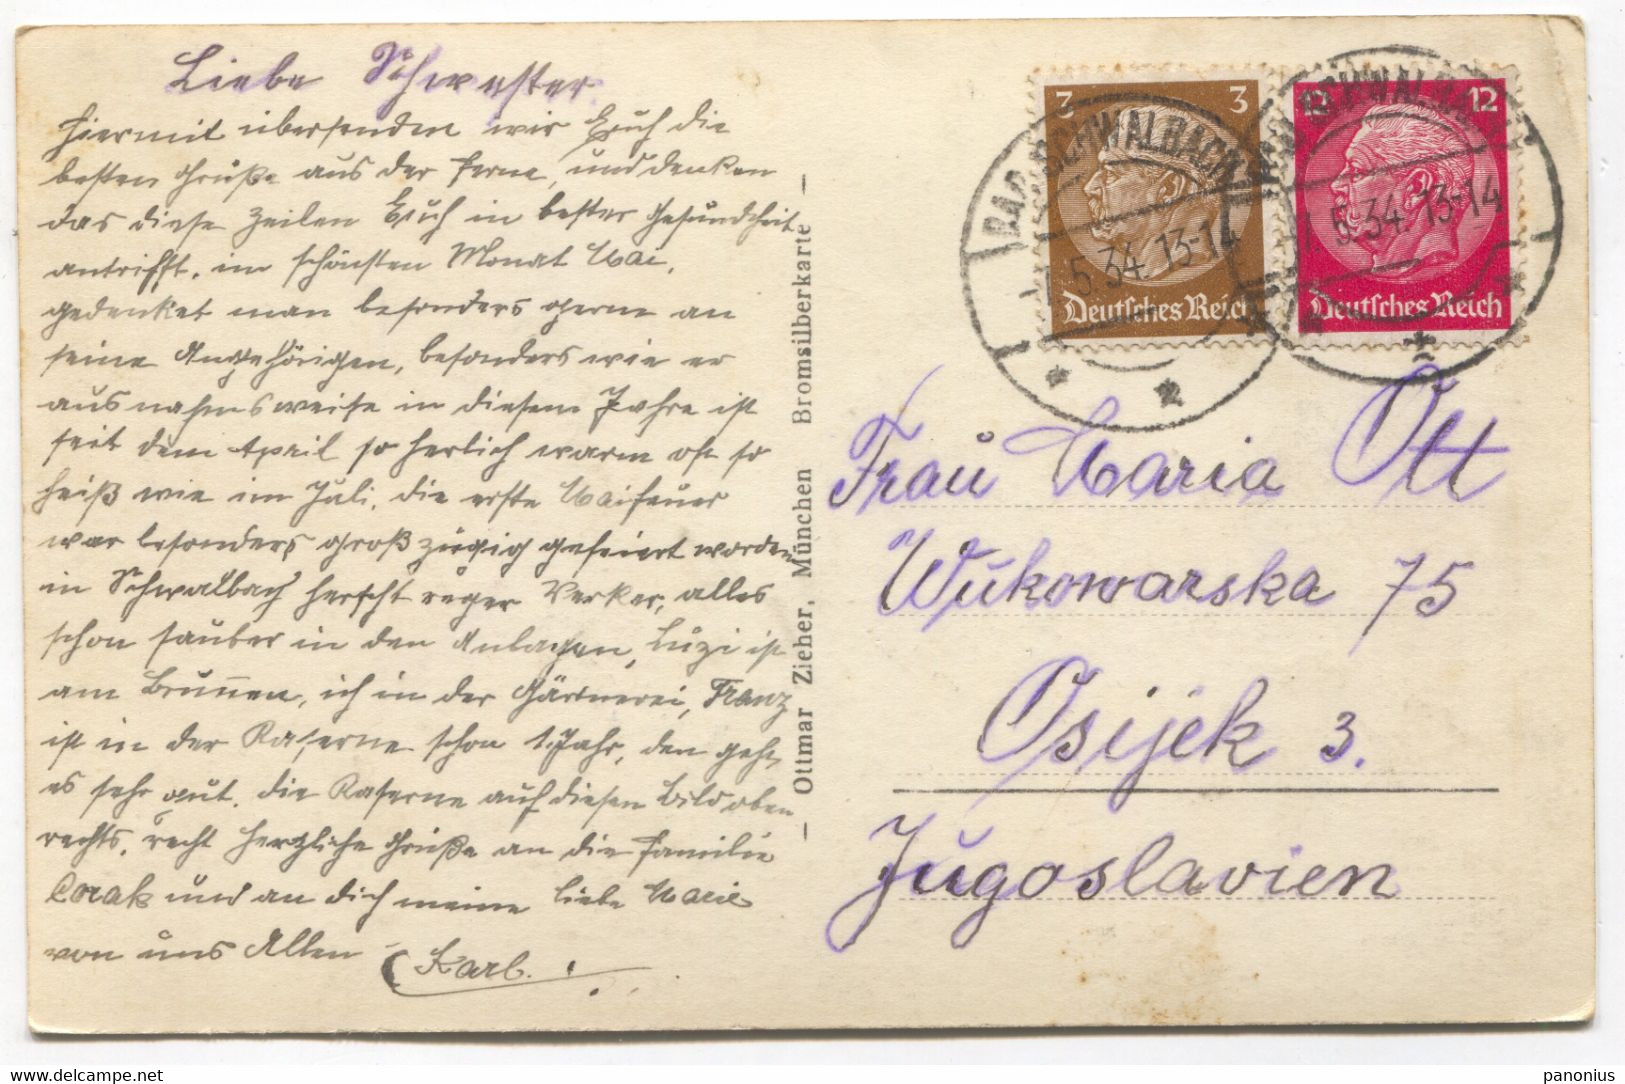 Liebe Schwester
Hiermit übersenden wir Euch die
besten Grüße aus der Ferne, und denken
das diese Zeilen Euch in bester Gesundheit
antrifft, im schönsten Monat Mai,
gedenket man besonders gerne an
seine Angehörigen, besonders wie er
ausnahmsweise in diesem Jahre ist
seit dem April so herlich warm oft so
heiß wie im Juli, die erste Maifeuer
war besonders großzügig gefeiert worden
in Schwalbach herscht reger Verker, alles
schon sauber in den Anlagen, Luzi ist
am Brunnen, ich in der Gärtnerei, Franz
ist in der Kaserne schon 1. Jahr, den geht
es sehr gut. die Kaserne auf diesen Bild oben
rechts, recht herzliche Grüße an die Familie
Corak und an dich meine liebe Marie
von uns Allen Karl.
Ottmar Zieher, München Bromsilberkarte
3 3
Deutsches Reich
12 12
Deutsches Reich
BAD SCHWALBACH
1.5.34.13-14
BAD SCHWALBACH
1.5.34.13-14
Frau Maria Ott
Wukowarska 75
Osijek 3.
Jugoslavien
panonius